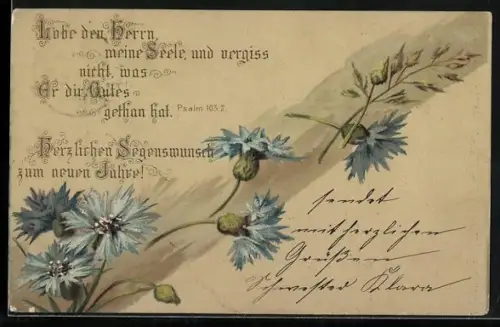 Lobe den Herrn,
meine Seele, und vergiss
nicht, was
Er dir Gutes
gethan hat. Psalm 103.2.
Herzlichen Segenswunsch
zum neuen Jahre!
sendet
mit herzlichen
Grüßen
Schwester Klara